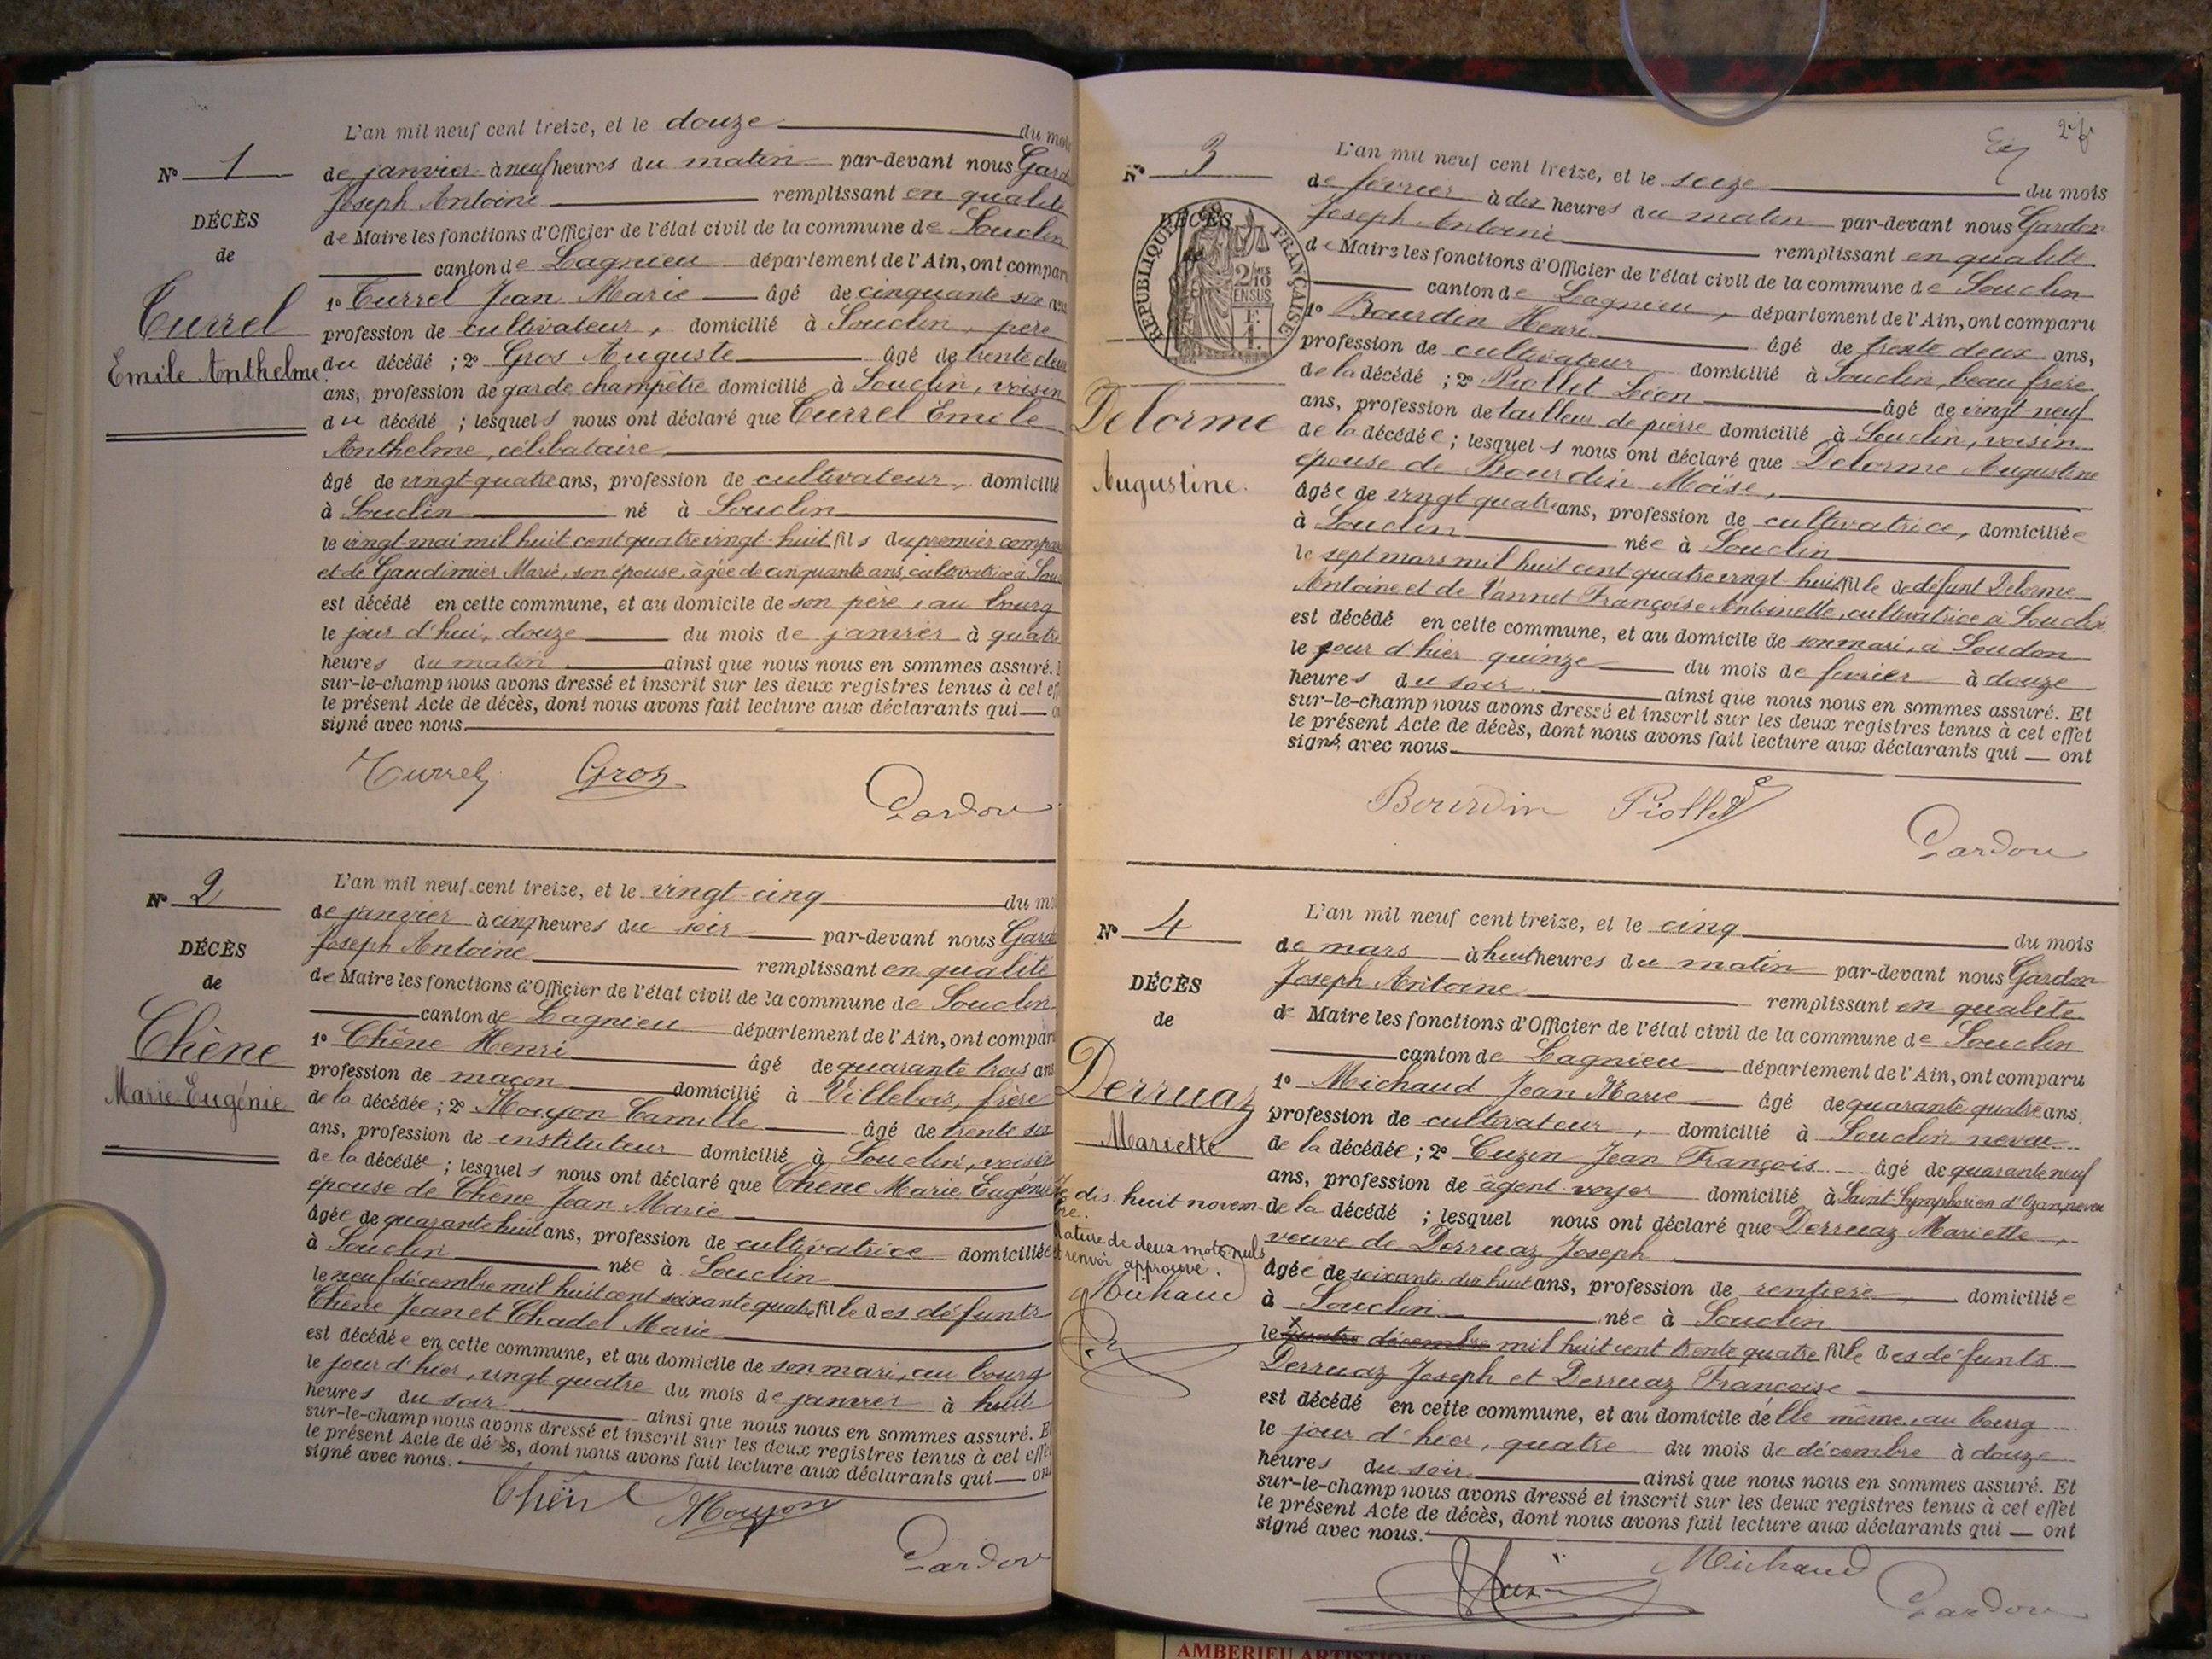 L'an mil neuf cent treize, et le douze du mois
N° 1
de janvier à neuf heures du matin par-devant nous Gard
Joseph Antoine remplissant en qualité
DÉCÈS
de Maire les fonctions d'Officier de l'état civil de la commune de Souclin
de
canton de Lagnieu département de l'Ain, ont compar
Currel
Emile Anthelme
1° Currel Jean Marie âgé de cinquante six ans
profession de cultivateur, domicilié à Souclin, père
du décédé ; 2° Gros Auguste âgé de trente deux
ans, profession de garde champêtre domicilié à Souclin, voisin
du décédé ; lesquels nous ont déclaré que Currel Emile
Anthelme, célibataire,
âgé de vingt-quatre ans, profession de cultivateur, domicilié
à Souclin né à Souclin
le vingt mai mil huit cent quatre vingt-huit fils du premier compar
et de Gaudimier Marie, son épouse, âgée de cinquante ans, cultivatrice à Sou
est décédé en cette commune, et au domicile de son père, au bourg
le jour d'hui, douze du mois de janvier à quatre
heures du matin ainsi que nous nous en sommes assuré.
sur-le-champ nous avons dressé et inscrit sur les deux registres tenus à cet eff
le présent Acte de décès, dont nous avons fait lecture aux déclarants qui — o
signé avec nous.
Currel Gros
Gardon
L'an mil neuf cent treize, et le vingt-cinq du m
N° 2
de janvier à cinq heures du soir par-devant nous Gard
Joseph Antoine remplissant en qualité
DÉCÈS
de Maire les fonctions d'Officier de l'état civil de la commune de Souclin
de
canton de Lagnieu département de l'Ain, ont compar
Chêne
Marie Eugénie
1° Chêne Henri âgé de quarante trois ans
profession de maçon domicilié à Villebois, frère
de la décédée ; 2° Moujon Camille âgé de trente six
ans, profession de instituteur domicilié à Souclin, voisin
de la décédée ; lesquels nous ont déclaré que Chêne Marie Eugénie
épouse de Chêne Jean Marie
âgée de quarante huit ans, profession de cultivatrice domiciliée
à Souclin née à Souclin
le neuf décembre mil huit cent soixante quatre fille des défunts
Chêne Jean et Chadel Marie
est décédée en cette commune, et au domicile de son mari, au bourg
le jour d'hier, vingt quatre du mois de janvier à huit
heures du soir ainsi que nous nous en sommes assuré. E
sur-le-champ nous avons dressé et inscrit sur les deux registres tenus à cet effe
le présent Acte de décès, dont nous avons fait lecture aux déclarants qui — ont
signé avec nous.
Chêne Moujon
Gardon
2e f
L'an mil neuf cent treize, et le seize du mois
N° 3
de février à dix heures du matin par-devant nous Gardon
Joseph Antoine remplissant en qualité
DÉCÈS
RÉPUBLIQUE FRANÇAISE
2/10 EN SUS
F. 1.
de Maire les fonctions d'Officier de l'état civil de la commune de Souclin
canton de Lagnieu, département de l'Ain, ont comparu
1° Bourdin Henri âgé de trente deux ans,
profession de cultivateur domicilié à Souclin, beau frère
Delorme
Augustine.
de la décédé ; 2° Piollet Léon âgé de vingt-neuf
ans, profession de tailleur de pierre domicilié à Souclin, voisin
de la décédée ; lesquels nous ont déclaré que Delorme Augustine
épouse de Bourdin Moïse,
âgée de vingt quatre ans, profession de cultivatrice, domiciliée
à Souclin née à Souclin
le sept mars mil huit cent quatre vingt-huit fille de défunt Delorme
Antoine et de Vannet Françoise Antoinette, cultivatrice à Souclin
est décédé en cette commune, et au domicile de son mari, à Soudon
le jour d'hier quinze du mois de février à douze
heures du soir. ainsi que nous nous en sommes assuré. Et
sur-le-champ nous avons dressé et inscrit sur les deux registres tenus à cet effet
le présent Acte de décès, dont nous avons fait lecture aux déclarants qui — ont
signé avec nous.
Bourdin Piollet
Gardon
L'an mil neuf cent treize, et le cinq du mois
N° 4
de mars à huit heures du matin par-devant nous Gardon
Joseph Antoine remplissant en qualité
DÉCÈS
de Maire les fonctions d'Officier de l'état civil de la commune de Souclin
de
canton de Lagnieu département de l'Ain, ont comparu
Derruaz
Mariette
1° Michaud Jean Marie âgé de quarante quatre ans.
profession de cultivateur, domicilié à Souclin neveu
de la décédée ; 2° Cuzin Jean François âgé de quarante neuf
ans, profession de agent-voyer domicilié à Saint-Symphorien d'Ozon, neveu
de la décédé ; lesquel nous ont déclaré que Derruaz Mariette,
veuve de Derruaz Joseph
âgée de soixante dix huit ans, profession de rentière, domiciliée
à Souclin née à Souclin
le quatre décembre mil huit cent trente quatre fille des défunts
Derruaz Joseph et Derruaz Françoise
est décédé en cette commune, et au domicile d'elle même, au bourg
le jour d'hier, quatre du mois de décembre à douze
heures du soir ainsi que nous nous en sommes assuré. Et
sur-le-champ nous avons dressé et inscrit sur les deux registres tenus à cet effet
le présent Acte de décès, dont nous avons fait lecture aux déclarants qui — ont
signé avec nous.
dix-huit novem-
bre.
Rature de deux mots nuls
et renvoi approuvé.
Michaud
Cuzin Michaud
Gardon
AMBERIEU ARTISTIQUE